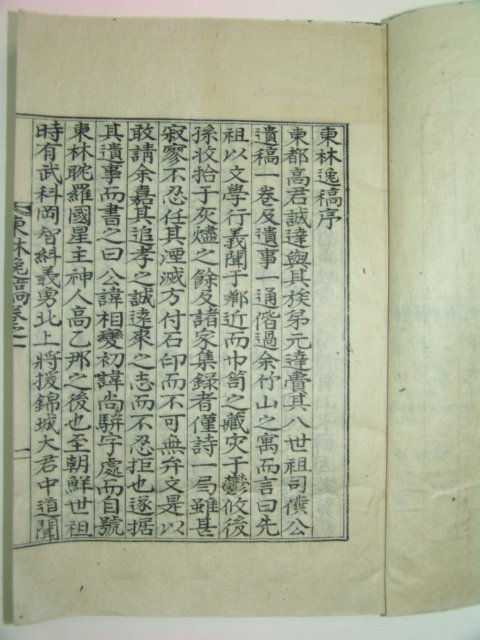 東林逸稿序
東都高君誠達與其族弟元達賷其八世祖司僕公
遺稿一卷及遺事一通偕過余竹山之寓而言曰先
祖以文學行義聞于鄉近而巾笥之藏灾于鬱攸後
孫收拾于灰燼之餘及諸家集錄者僅詩一局雖甚
寂寥不忍任其湮滅方付石印而不可無弁文是以
敢請余嘉其追孝之誠達來之志而不忍拒也遂据
其遺事而書之曰公諱相變初諱尙騈字處而自號
東林眈羅國星主神人高乙那之後也至朝鮮世祖
時有武科岡智糾義勇北上將援錦城大君中道聞
東林逸稿卷之一
一